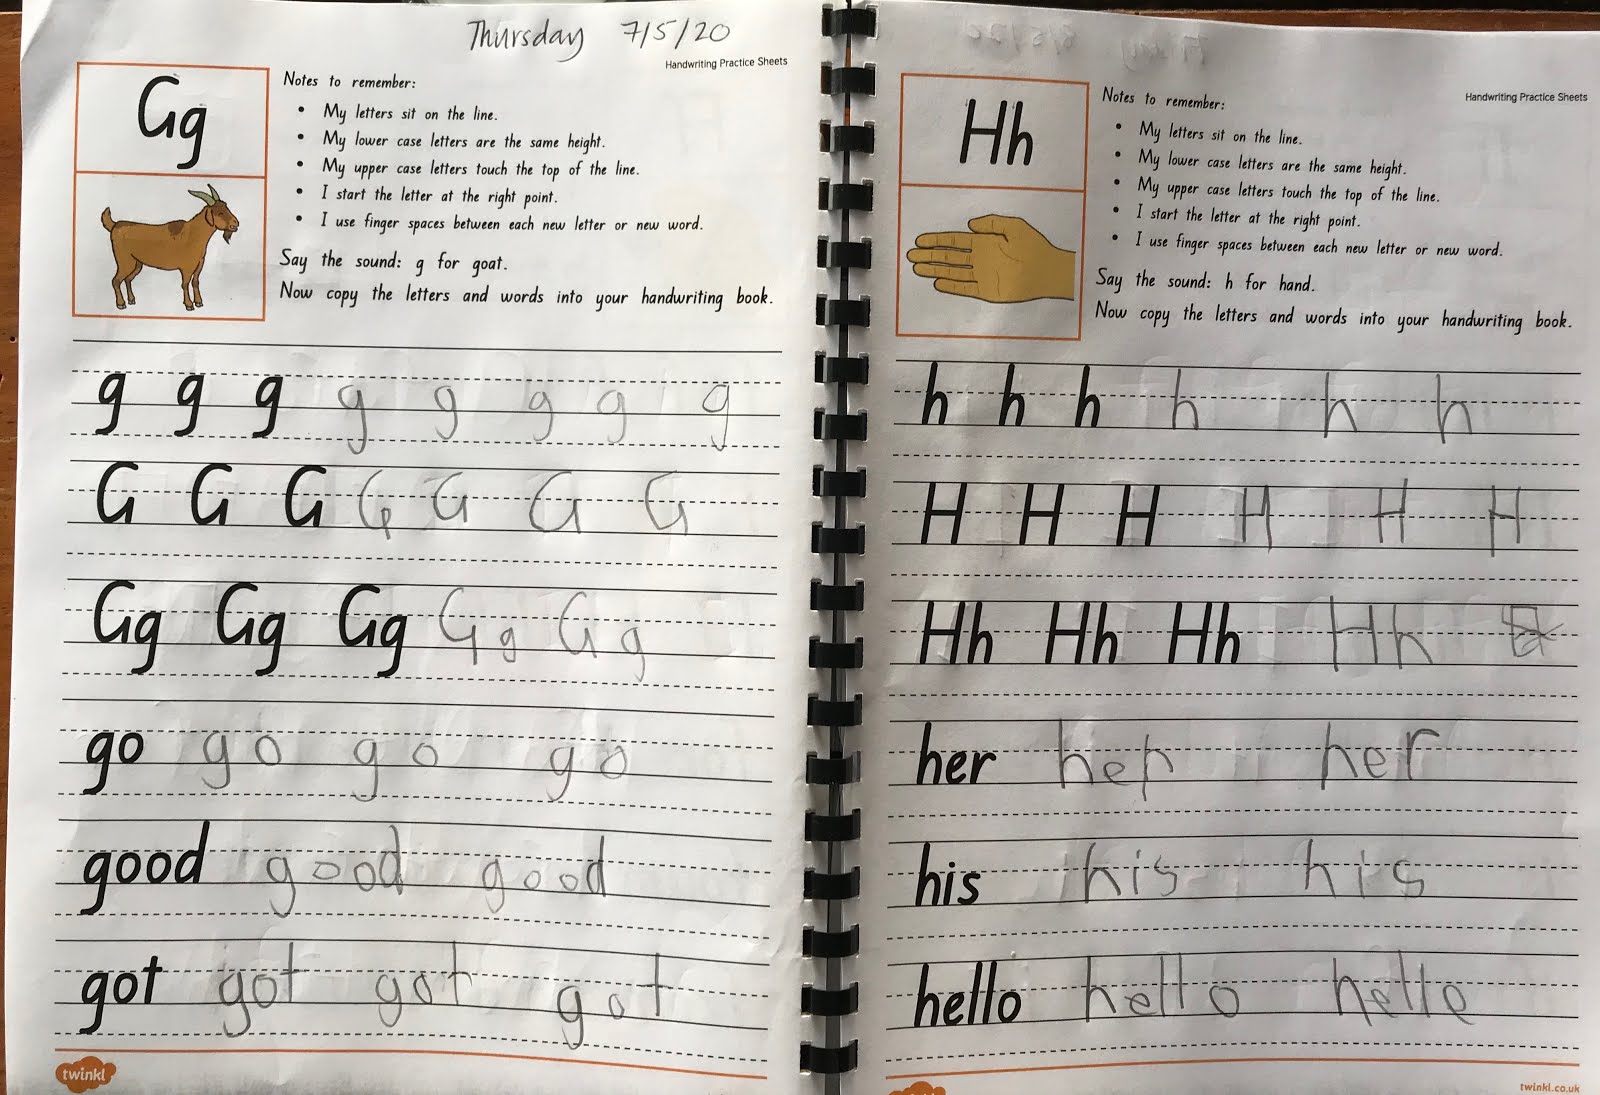 Thursday 7/5/20
Handwriting Practice Sheets
Gg
Notes to remember:
• My letters sit on the line.
• My lower case letters are the same height.
• My upper case letters touch the top of the line.
• I start the letter at the right point.
• I use finger spaces between each new letter or new word.
Say the sound: g for goat.
Now copy the letters and words into your handwriting book.
g g g g g g g g
G G G G G G G
Gg Gg Gg Gg Gg
go go go go
good good good
got got got got
twinkl
Handwriting Practice Sheets
Hh
Notes to remember:
• My letters sit on the line.
• My lower case letters are the same height.
• My upper case letters touch the top of the line.
• I start the letter at the right point.
• I use finger spaces between each new letter or new word.
Say the sound: h for hand.
Now copy the letters and words into your handwriting book.
h h h h h h
H H H H H H
Hh Hh Hh Hh
her her her
his his his
hello hello hello
twinkl.co.uk